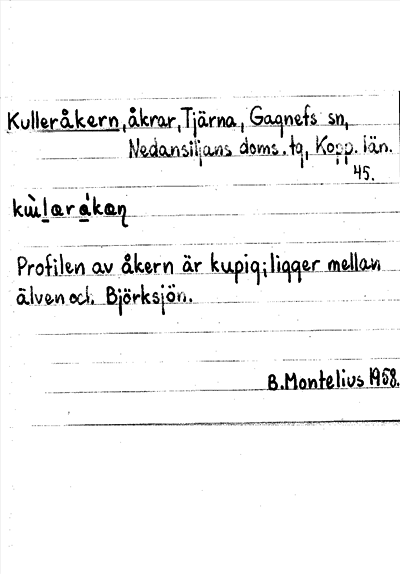 Kulleråkern, åkrar, Tjärna, Gagnefs sn,
Nedansiljans doms.tg, Kopp. län.
45.
Profilen av åkern är kupig; ligger mellan
älven och Björksjön.
B. Montelius 1958.